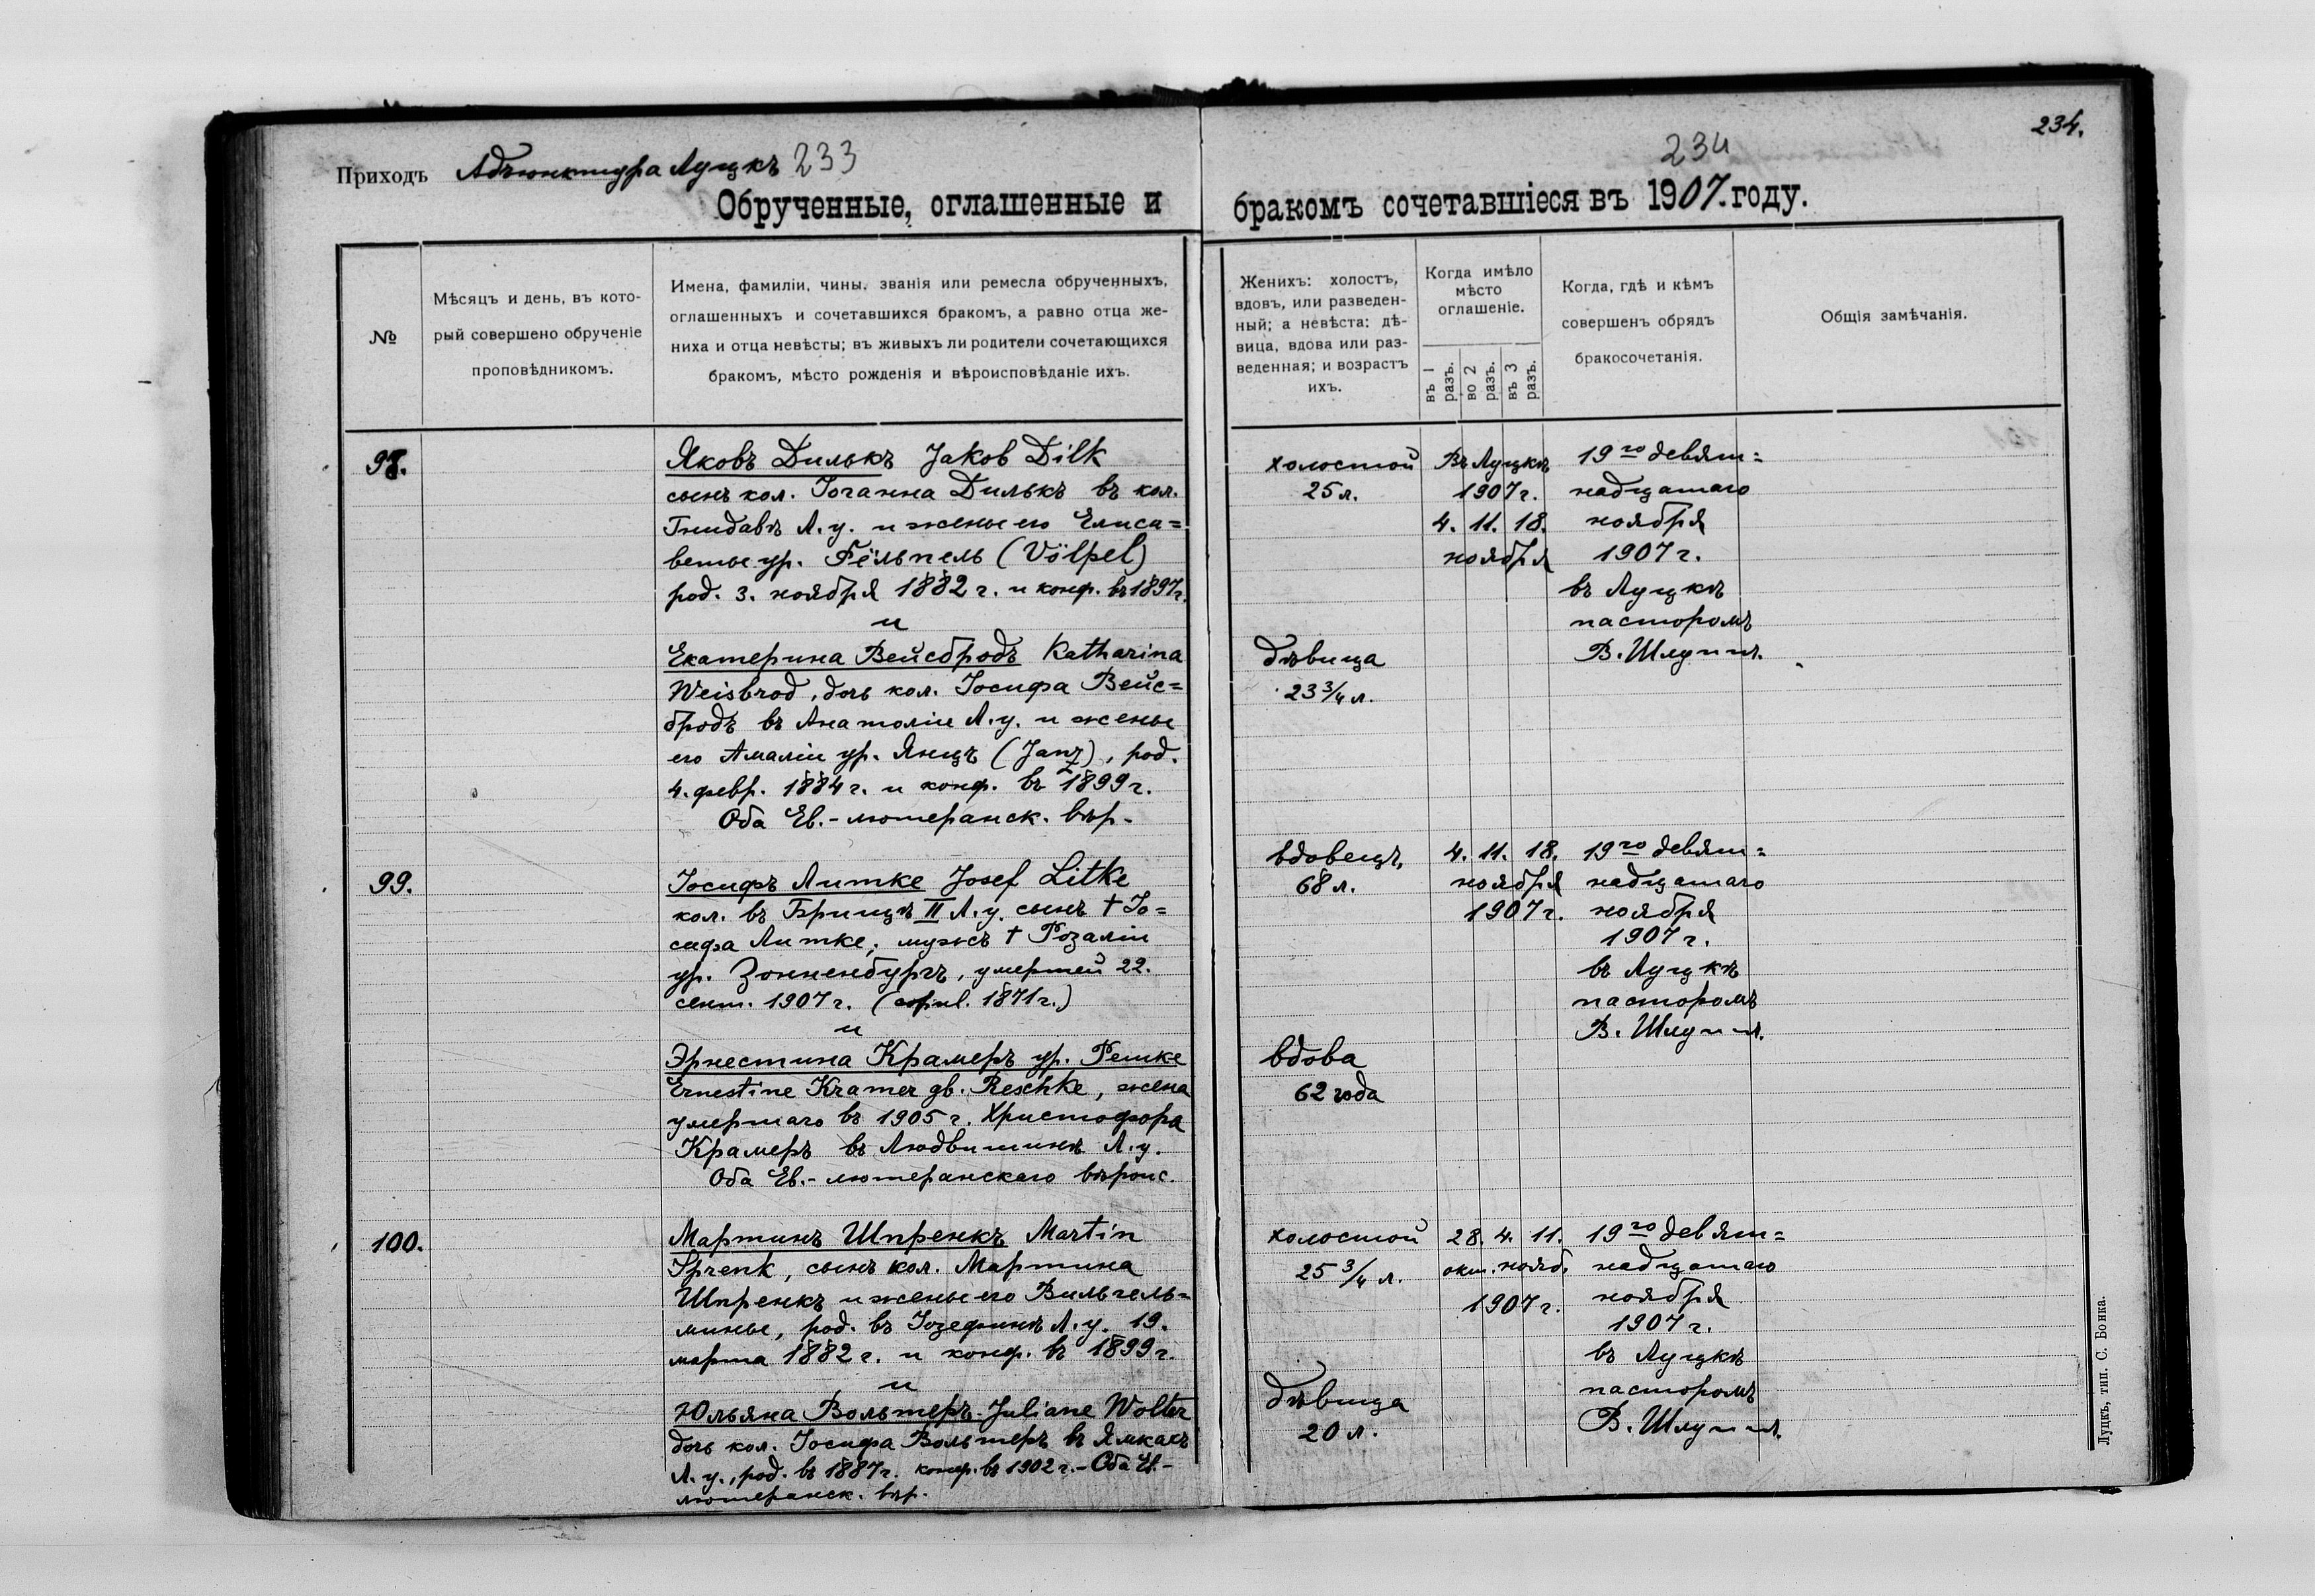 Приходъ Адъюнктура Луцкъ 233
Обрученные, оглашенные и
№
Мѣсяцъ и день, въ кото-
рый совершено обрученіе
проповѣдникомъ.
Имена, фамиліи, чины, званія или ремесла обрученныхъ,
оглашенныхъ и сочетавшихся бракомъ, а равно отца же-
ниха и отца невѣсты; въ живыхъ ли родители сочетающихся
бракомъ, мѣсто рожденія и вѣроисповѣданіе ихъ.
98.
Яковъ Дилькъ Jakob Dilk
сынъ кол. Іоганна Дилькъ въ кол.
Гнидавѣ Л. у. и жены его Елиса=
веты ур. Фёльпель (Völpel)
род. 3. ноября 1882 г. и конф. въ 1897 г.
и
Екатерина Вейсбродъ Katharina
Weisbrod, дочь кол. Іосифа Вейс=
бродъ въ Анатоліи Л. у. и жены
его Амаліи ур. Янцъ (Janz), род.
4. февр. 1884 г. и конф. въ 1899 г.
Оба Ев.-лютеранск. вѣр.
99.
Іосифъ Литке Josef Litke
кол. въ Брищѣ II Л. у. сынъ † Іо=
сифа Литке, мужъ † Розаліи
ур. Зонненбургъ, умершей 22.
сент. 1907 г. ( 1871 г.)
и
Эрнестина Крамеръ ур. Решке
Ernestine Kramer gb. Reschke, жена
умершаго въ 1905 г. Христофора
Крамеръ въ Людвишинѣ Л. у.
Оба Ев.-лютеранскаго вѣроис.
100.
Мартинъ Шпренкъ Martin
Sprenk, сынъ кол. Мартина
Шпренкъ и жены его Вильгель=
мины, род. въ Іозефинѣ Л. у. 19.
марта 1882 г. и конф. въ 1899 г.
и
Юльяна Вольтеръ Juliane Wolter
дочь кол. Іосифа Вольтеръ въ Ямкахъ
Л. у., род. въ 1887 г. конф. въ 1902 г. - Оба Ев.-
лютеранск. вѣр.
234.
234
бракомъ сочетавшіеся въ 1907. году.
Женихъ: холостъ,
вдовъ, или разведен-
ный; а невѣста: дѣ-
вица, вдова или раз-
веденная; и возрастъ
ихъ.
Когда имѣло
мѣсто
оглашеніе.
въ 1 разъ.
во 2 разъ.
въ 3 разъ.
Когда, гдѣ и кѣмъ
совершенъ обрядъ
бракосочетанія.
Общія замѣчанія.
холостой
25 л.
Въ Луцкѣ
1907 г.
4. 11. 18.
ноября
19го девят=
надцатаго
ноября
1907 г.
въ Луцкѣ
пасторомъ
В. Шлуппъ.
дѣвица
23 3/4 л.
вдовецъ,
68 л.
4. 11. 18.
ноября
1907 г.
19го девят=
надцатаго
ноября
1907 г.
въ Луцкѣ
пасторомъ
В. Шлуппъ.
вдова
62 года
холостой
25 3/4 л.
28. 4. 11.
окт. нояб.
1907 г.
19го девят=
надцатаго
ноября
1907 г.
въ Луцкѣ
пасторомъ
В. Шлуппъ.
дѣвица
20 л.
Луцкъ, тип. С. Бонка.